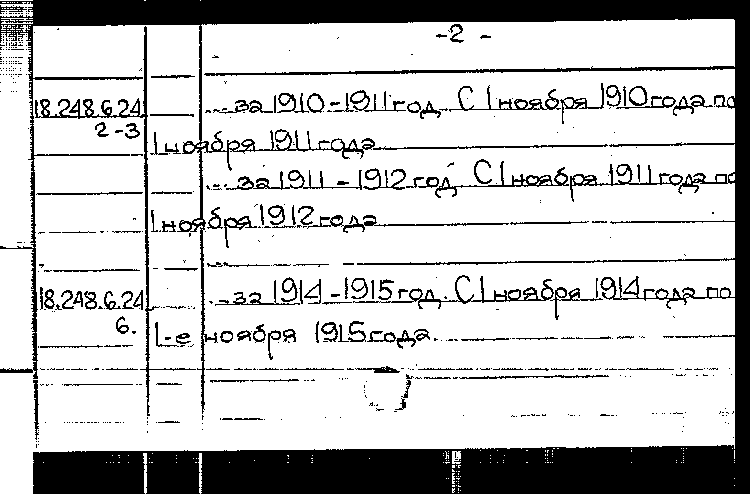 -2 -
18.248.6.24 ... за 1910-1911 год. С 1 ноября 1910 года по
2-3 1 ноября 1911 года
... за 1911 - 1912 год. С 1 ноября 1911 года по
1 ноября 1912 года
18.248.6.24 ... за 1914-1915 год. С 1 ноября 1914 года по
6. 1-е ноября 1915 года.